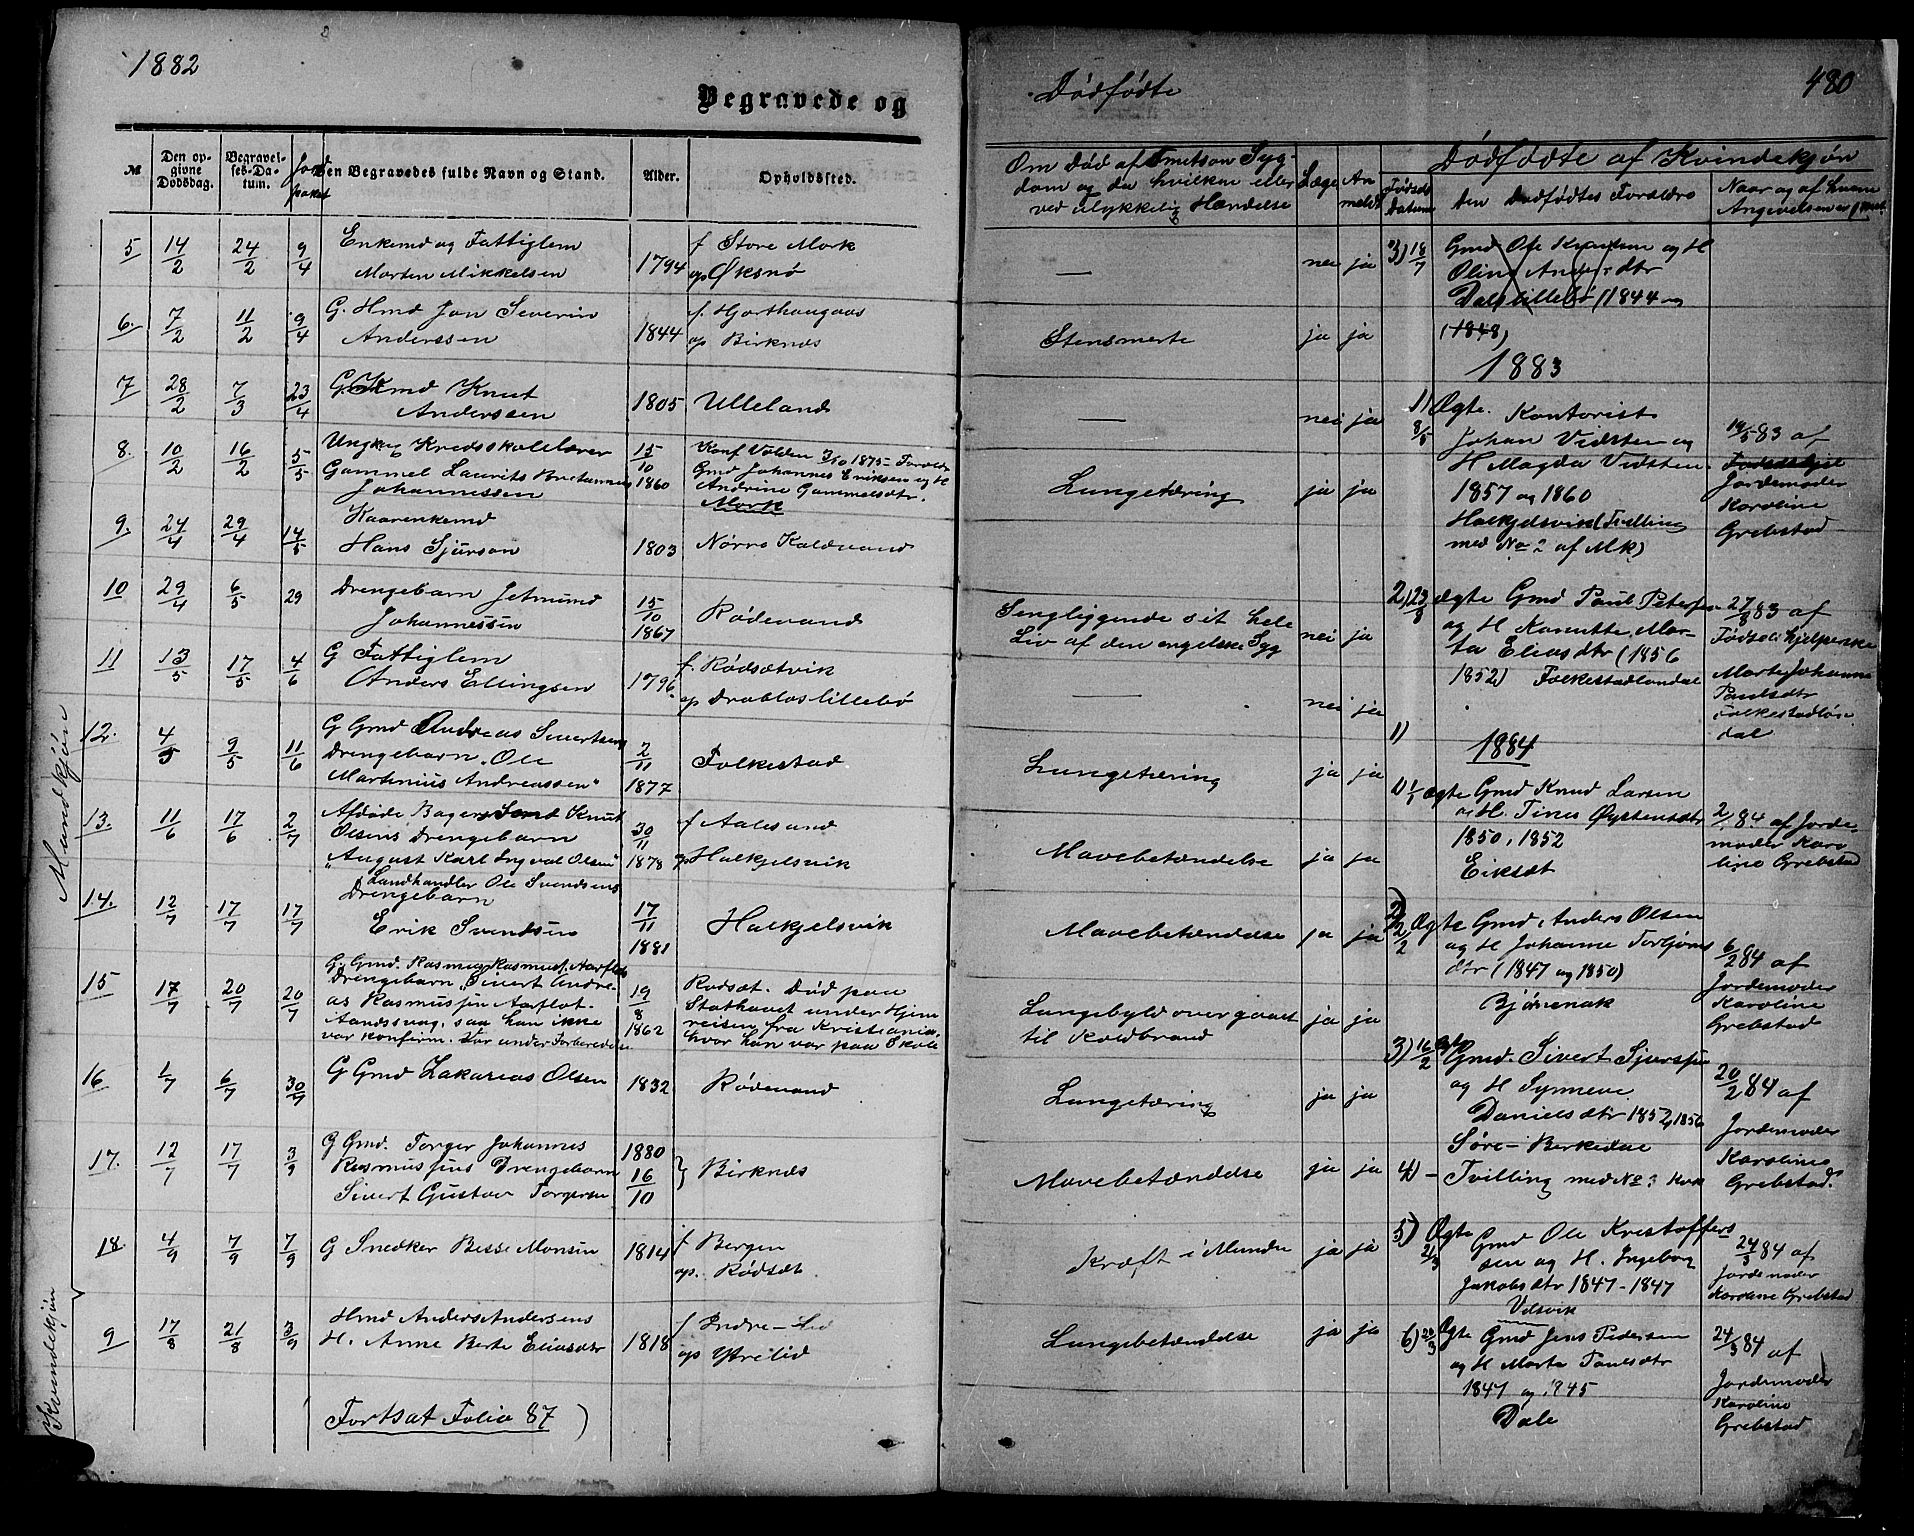 1882
Begravede og
№ | Den opgivne Dødsdag. | Begravelses-Datum. | Jordpaket | Den Begravedes fulde Navn og Stand. | Alder. | Opholdssted.
Mandkjøn
5 14/2 24/2 9/4 Enkemd og Fattiglem 1794 f Store Mork
Morten Mikkelsen op Øksnø
6. 7/2 11/2 9/4 G. Hmd Jon Severin 1844 f. Hjorthaugaas
Anderssen op Birknæs
7 28/2 7/3 23/4 G. Kmd Knut 1805 Ulleland
Anderssen
8. 10/2 16/2 5/5 Ungk og Kredsskolelærer 15/10 1860 Konf Volden 3/10 1875 - Foreldr
Gammel Laurits Bretannus Gmd Johannes Eriksen og H
Johannessen Andrine Gammelsdtr.
Mork
9. 24/4 29/4 14/5 Kaarenkemd
Hans Sjurson 1803 Nørre Koldvand
10 29/4 6/5 29 Drengebarn Jetmund 15/10 1867 Rødevand
Johannessen
11 13/5 17/5 4/6 G Fattiglem 1796 f. Rødsætvik
Anders Ellingsen op Drabløslillebø
12. 4/5 9/5 11/6 G Gmd Andreas Sivertsens 2/11 1877 Folkestad
Drengebarn „Ole
Martinius Andreassen“
13. 11/6 17/6 2/7 Afdøde Bagersvend Knut 30/11 1878 f Aalesund
Olsens Drengebarn op Halkjelsvik
„August Karl Ingval Olsen“
14. 12/7 17/7 17/7 Landhandler Ole Svendsens 17/11 1881 Halkjelsvik
Drengebarn
Erik Svendsen
15 17/7 20/7 20/7 G. Gmd. Rasmus Rasmuss. Aarflots 19/8 1862 Rødsæt. Død paa
Drengebarn „Sivert Andre- Stathavet under Hjem
as Rasmussen Aarflot. reisen fra Kristiania,
Aandssvag, saa han ikke hvor han var paa Skole
var konfirm. Var under Forberedelse
16 1/7 6/7 30/7 G Gmd Zakarias Olsen 1832 Rødevand
17. 12/7 17/7 3/9 G Gmd. Torger Johannes 1880 16/10 Birknæs
Rasmussens Drengebarn
Sivert Gustav Torgersen
18. 4/9 7/9 7/9 G Snedker Besse Monsen 1814 f Bergen
op. Rødsæt
Kvindekjøn
9 17/8 21/8 3/9 Hmd Anders Andersens 1818 f Indre-Lid
H. Anne Berte Eliasdtr op Ytrelid
(Fortsat Folio 87)
Dødfødte
480
Om Død af Smitsom Syg-
dom og da hvilken eller
ved ulykkelig Hændelse | Læge | An meldt
Dødfødte af Kvindekjøn
Fødsels Datum | Den Dødfødtes Forældre | Naar og af hvem Angivelsen er
— nei ja
Stensmerte ja ja
— nei ja
Lungetæring ja ja
Sengliggende sit hele
Liv af den engelske Syg nei ja
— nei ja
Lungetæring ja ja
Mavebetændelse ja ja
Mavebetændelse ja ja
Lungebyld overgaaet
til Koldbrand ja ja
Lungetæring ja ja
Mavebetændelse ja ja
Kræft i Munden ja ja
Lungebetændelse ja ja
3) 18/7 Gmd Ole Knudsen og H
Oline Andersdtr
Dalslillebø (1844 og
(1848)
1883
1) 8/5 Ægte. Kontorist
Johan Vidsten og
H Magda Vidsten
1857 og 1860
Halkjelsvik (Tvilling
med No 2 af Mk)
19/5 83 af
Jordemoder
Karoline
Grebstad
2) 23/8 ægte Gmd Paul Peters
og H. Mar-
ta Eliasdtr (1856
1852) Folkestadlandal
27/8 83 af
Fødselshjelperske
Marte Johanne
Paulsdtr
dal
1)
1884
1) 1/1 Ægte Gmd Knud Larsen
og H. Tines Øystensdtr
1850, 1852
Eiksæt
2/1 84 af Jorde-
moder Karo
line Grebstad
2) 2/2 Ægte Gmd. Anders Olsen
og H Johanne Torbjørns
dtr (1847 og 1850)
Bjørnenak
6/2 84 af
Jordemoder
Karoline
Grebstad
3) 16/2 Ægte Gmd Sivert Sjurssen
og H Synneve
Danielsdtr 1852, 1856
Søre-Birkedal
20/2 84 af
Jordemoder
Karoline
Grebstad.
4) - Tvilling med No 3 Kvk
5) 21/3 Ægte Gmd Ole Kristoffers
sen og H. Ingeborg
Jakobsdtr 1847-1847
Velsvik
24/3 84 af
Jordemoder
Karoline Grebstad
6) 20/3 Ægte Gmd Jens Pedersen
og H Marte Paulsdtr
1847 og 1845
Dale
24/3 84 af
Jordemoder
Karoline
Grebstad